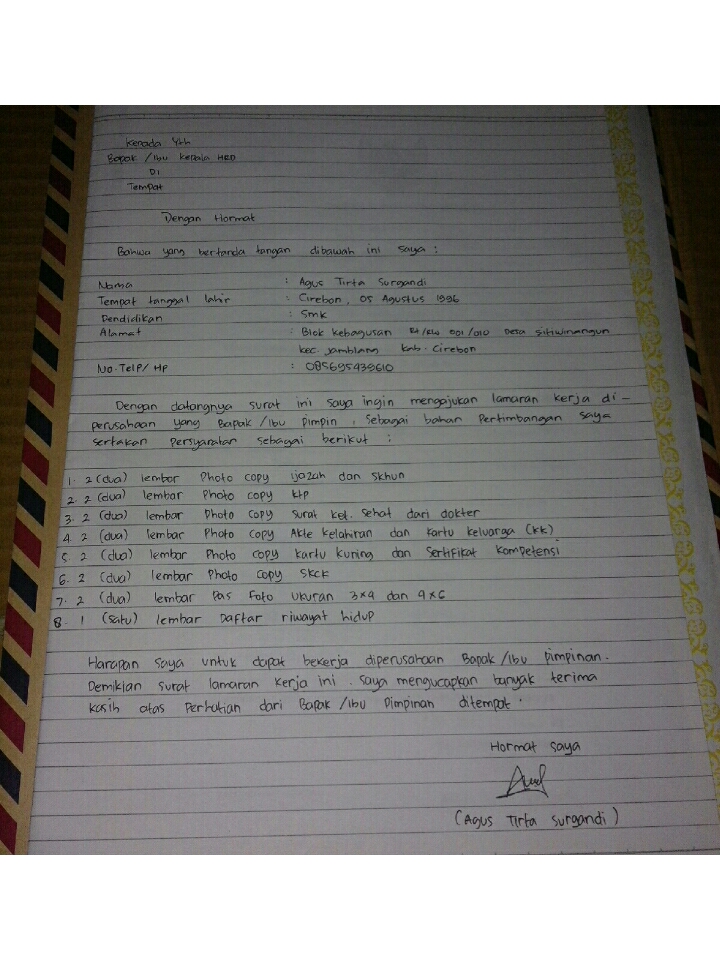 Kepada Yth
Bapak /Ibu Kepala HRD
Di
Tempat
Dengan Hormat
Bahwa yang bertanda tangan dibawah ini saya :
Nama : Agus Tirta Surgandi
Tempat tanggal lahir : Cirebon, 05 Agustus 1996
Pendidikan : Smk
Alamat : Blok kebagusan Rt/Rw 001/010 Desa sitiwinangun
kec. jamblang kab. Cirebon
No. Telp/ Hp : 085695439610
Dengan datangnya surat ini saya ingin mengajukan lamaran kerja di-
perusahaan yang Bapak /Ibu pimpin, sebagai bahan Pertimbangan saya
sertakan persyaratan sebagai berikut :
1. 2 (dua) lembar Photo copy ijazah dan skhun
2. 2 (dua) lembar Photo copy ktp
3. 2 (dua) lembar Photo copy surat ket. sehat dari dokter
4. 2 (dua) lembar Photo copy Akte kelahiran dan kartu keluarga (kk)
5. 2 (dua) lembar Photo copy kartu kuning dan Sertifikat kompetensi
6. 2 (dua) lembar Photo copy SKCK
7. 2 (dua) lembar Pas Foto ukuran 3x4 dan 4x6
8. 1 (satu) lembar Daftar riwayat hidup
Harapan saya untuk dapat bekerja diperusahaan Bapak /Ibu pimpinan.
Demikian surat lamaran kerja ini. Saya mengucapkan banyak terima
kasih atas perhatian dari Bapak /Ibu Pimpinan ditempat.
Hormat saya
(Agus Tirta Surgandi)